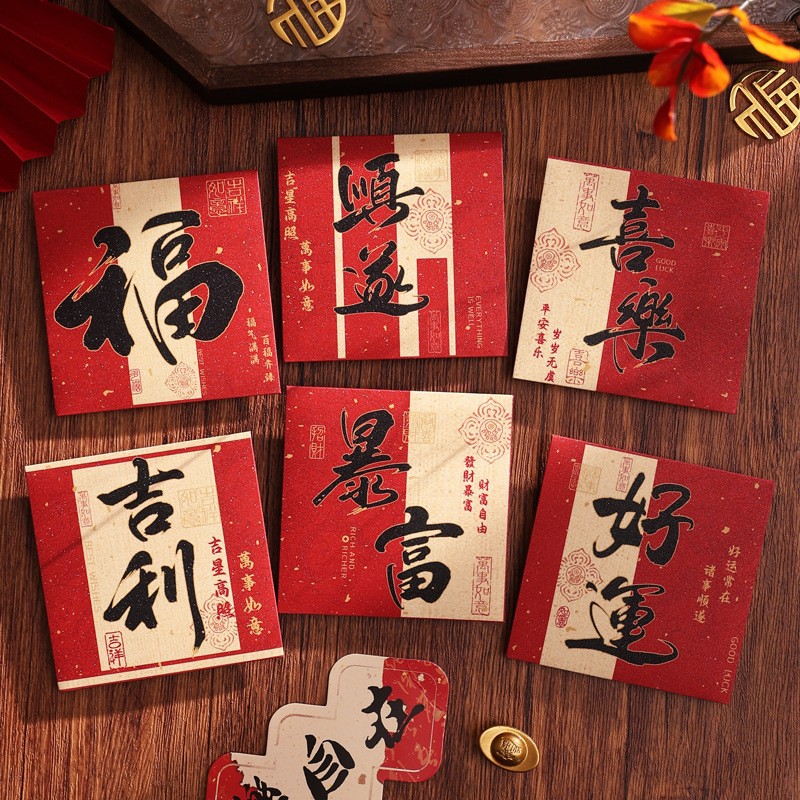 福
吉祥
如意
福气满满
百福齐臻
順遂
吉星高照
萬事如意
EVERYTHING
IS WELL
喜樂
萬事如意
GOOD
LUCK
平安喜乐
岁岁无虞
喜樂
吉利
吉星高照
萬事如意
吉祥
暴富
招財
發財暴富
财富自由
RICH AND
RICHER
萬事如意
好運
好运常在
诸事順遂
GOOD KICK